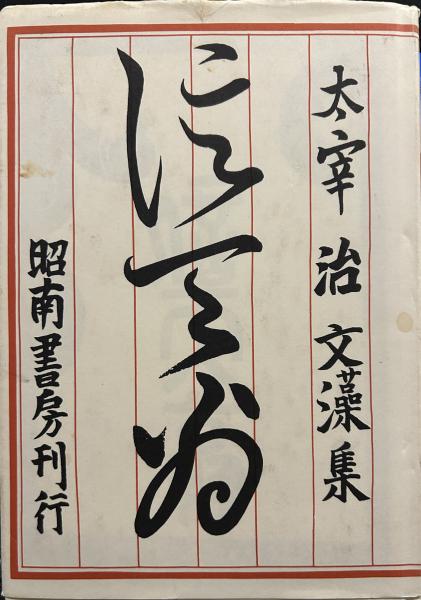 太宰 治 文藻集
信天翁
昭南書房刊行